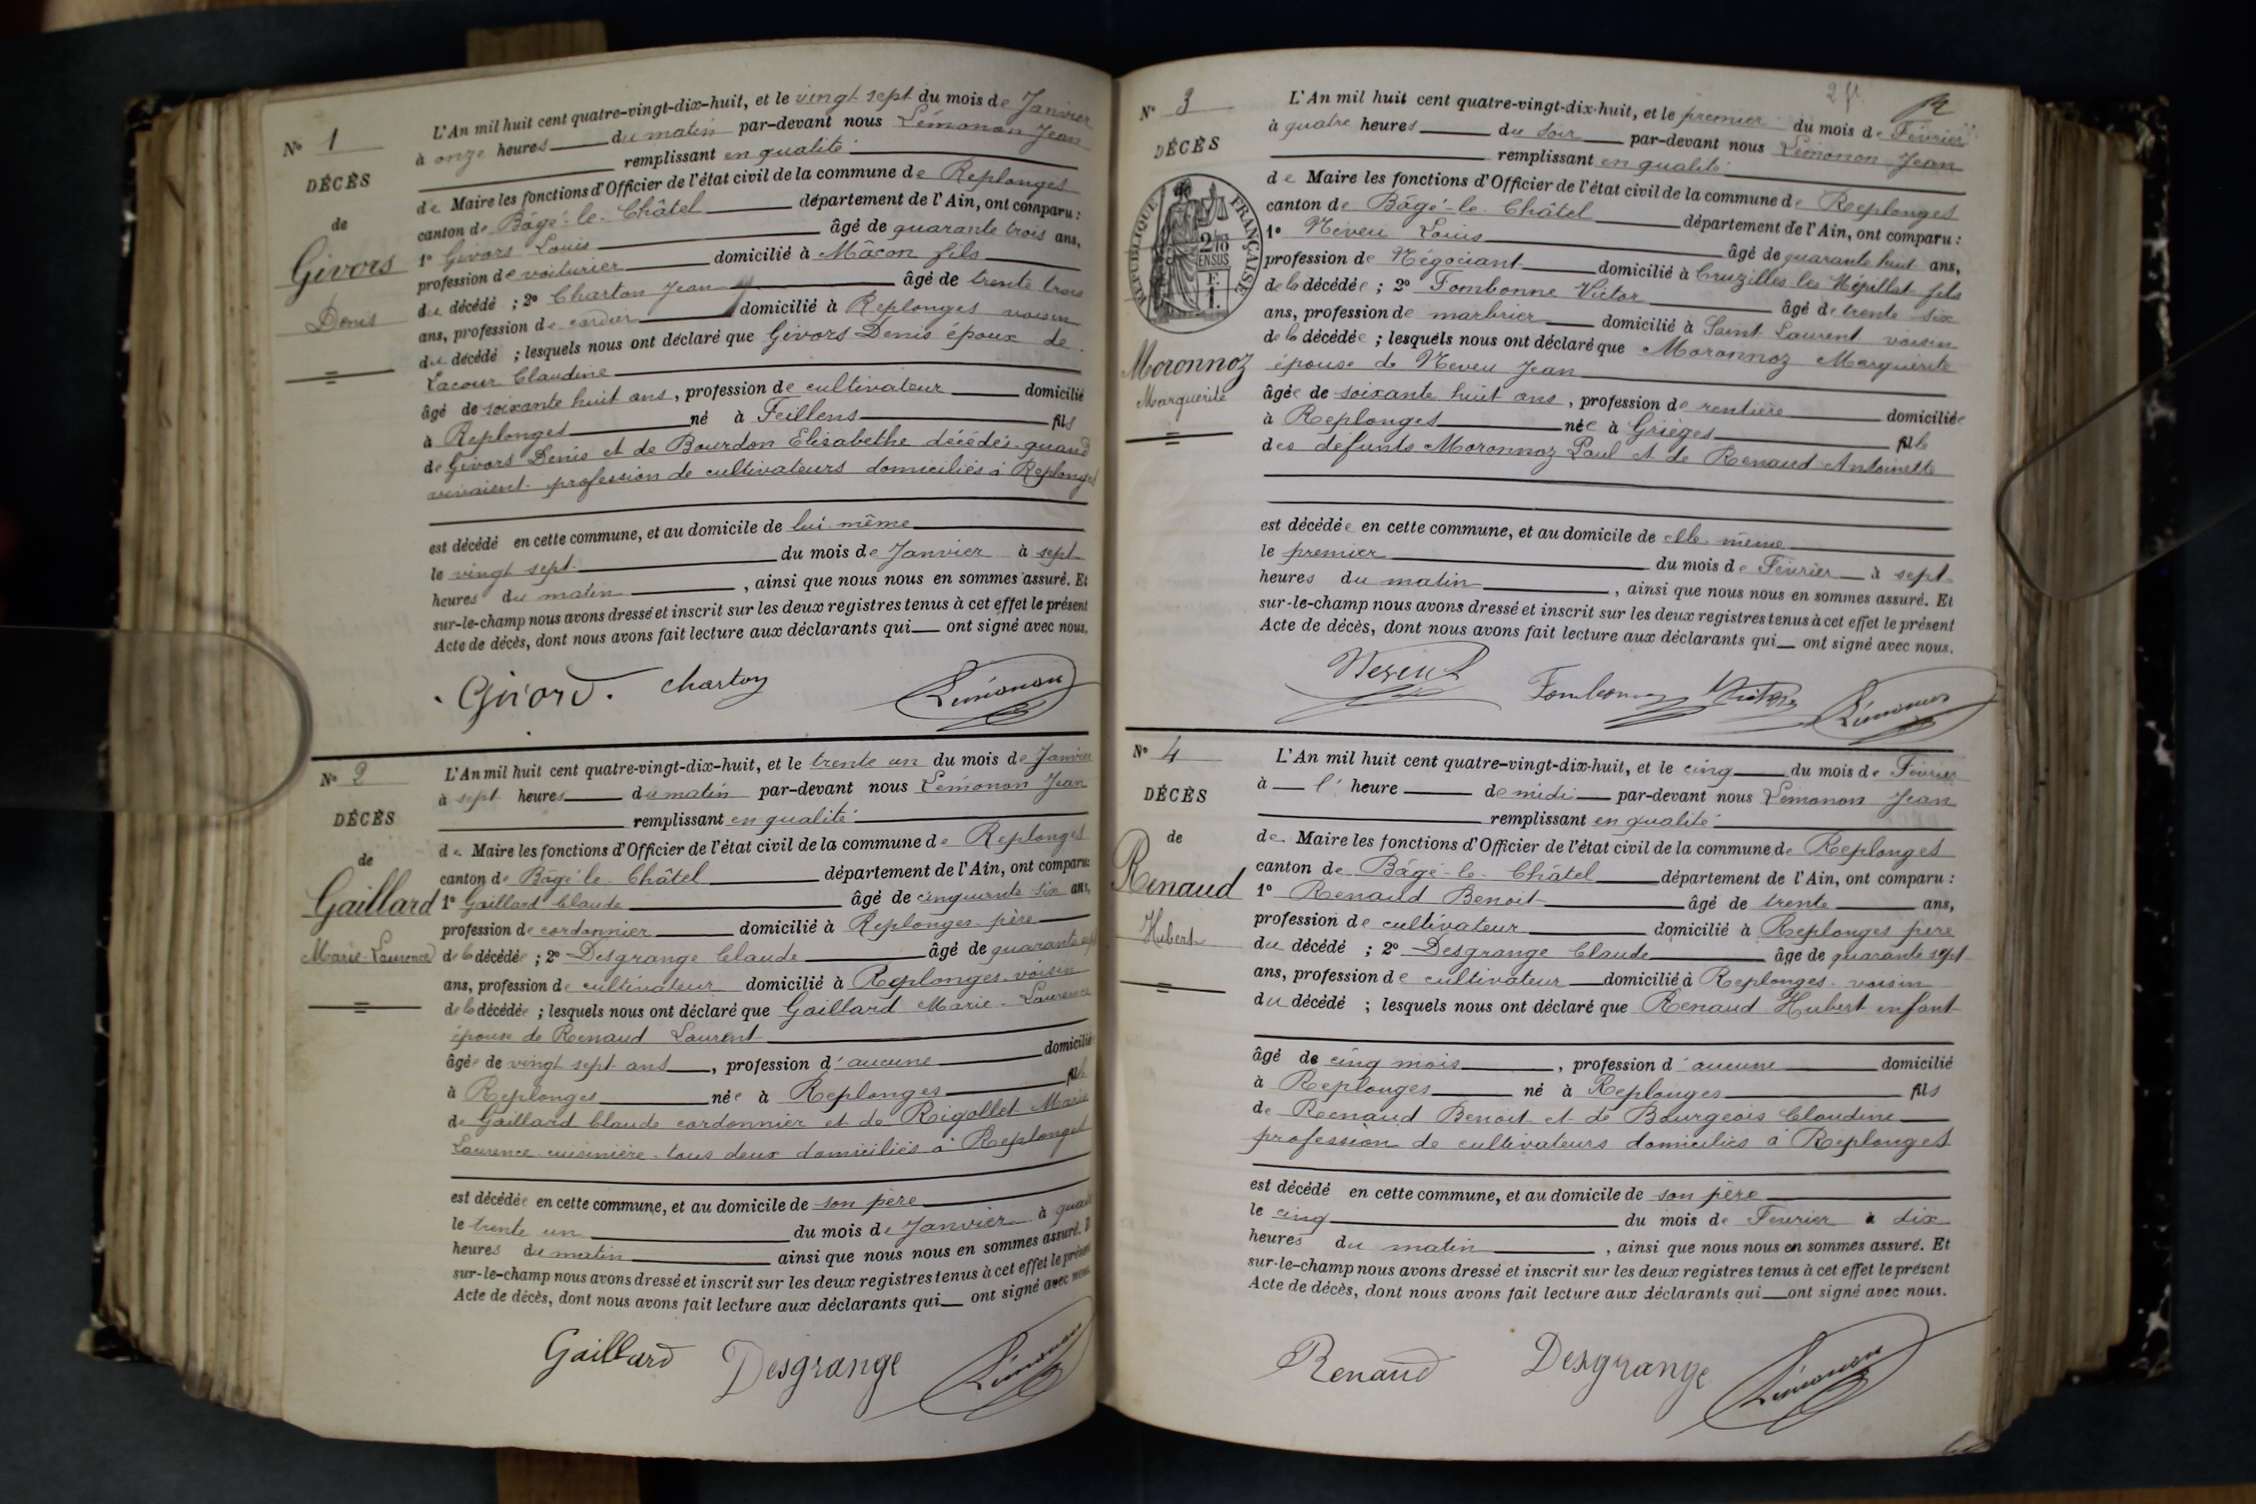 N° 1
DÉCÈS
de
Givors
Denis
L'An mil huit cent quatre-vingt-dix-huit, et le vingt sept du mois de Janvier
à onze heures du matin par-devant nous Lémonon Jean
remplissant en qualité
de Maire les fonctions d'Officier de l'état civil de la commune de Replonges
canton de Bâgé-le-Châtel département de l'Ain, ont comparu :
1° Givors Louis âgé de quarante trois ans,
profession de voiturier domicilié à Mâcon fils
du décédé ; 2° Charton Jean âgé de trente trois
ans, profession de domicilié à Replonges voisin
du décédé ; lesquels nous ont déclaré que Givors Denis époux de
Lacour Claudine
âgé de soixante huit ans, profession de cultivateur domicilié
à Replonges né à Feillens fils
de Givors Denis et de Bourdon Elisabethe décédés quand
vivaient profession de cultivateurs domiciliés à Replonges
est décédé en cette commune, et au domicile de lui même
le vingt sept du mois de Janvier à sept
heures du matin, ainsi que nous nous en sommes assuré. Et
sur-le-champ nous avons dressé et inscrit sur les deux registres tenus à cet effet le présent
Acte de décès, dont nous avons fait lecture aux déclarants qui ont signé avec nous.
Givord. Charton Lémonon
N° 2
DÉCÈS
de
Gaillard
Marie-Laurence
L'An mil huit cent quatre-vingt-dix-huit, et le trente un du mois de Janvier
à sept heures du matin par-devant nous Lémonon Jean
remplissant en qualité
de Maire les fonctions d'Officier de l'état civil de la commune de Replonges
canton de Bâgé-le-Châtel département de l'Ain, ont comparu :
1° Gaillard Claude âgé de cinquante six ans,
profession de cordonnier domicilié à Replonges père
de la décédée ; 2° Desgrange Claude âgé de quarante sept
ans, profession de cultivateur domicilié à Replonges voisin
de la décédée ; lesquels nous ont déclaré que Gaillard Marie-Laurence
épouse de Renaud Laurent
âgée de vingt sept ans, profession d'aucune domiciliée
à Replonges née à Replonges fille
de Gaillard Claude cordonnier et de Rigollet Marie
Laurence cuisinière tous deux domiciliés à Replonges
est décédée en cette commune, et au domicile de son père
le trente un du mois de Janvier à quatre
heures du matin ainsi que nous nous en sommes assuré. Et
sur-le-champ nous avons dressé et inscrit sur les deux registres tenus à cet effet le présent
Acte de décès, dont nous avons fait lecture aux déclarants qui ont signé avec nous.
Gaillard Desgrange Lémonon
2 f
N° 3
DÉCÈS
de
RÉPUBLIQUE FRANÇAISE
2/10
EN SUS
Moronnoz
Marguerite
L'An mil huit cent quatre-vingt-dix-huit, et le premier du mois de Février
à quatre heures du soir par-devant nous Lémonon Jean
remplissant en qualité
de Maire les fonctions d'Officier de l'état civil de la commune de Replonges
canton de Bâgé-le-Châtel département de l'Ain, ont comparu :
1° Neveu Louis âgé de quarante huit ans,
profession de Négociant domicilié à Cruzilles les Mépillat fils
de la décédée ; 2° Fombonne Victor âgé de trente six
ans, profession de marbrier domicilié à Saint Laurent voisin
de la décédée ; lesquels nous ont déclaré que Moronnoz Marguerite
épouse de Neveu Jean
âgée de soixante huit ans, profession de rentière domiciliée
à Replonges née à Grièges fille
des defunts Moronnoz Paul et de Renaud Antoinette
est décédée en cette commune, et au domicile de elle même
le premier du mois de Février à sept
heures du matin, ainsi que nous nous en sommes assuré. Et
sur-le-champ nous avons dressé et inscrit sur les deux registres tenus à cet effet le présent
Acte de décès, dont nous avons fait lecture aux déclarants qui ont signé avec nous.
Neveu L Fombonne Victor Lémonon
N° 4
DÉCÈS
de
Renaud
Hubert
L'An mil huit cent quatre-vingt-dix-huit, et le cinq du mois de Février
à l' heure de midi par-devant nous Lémonon Jean
remplissant en qualité
de Maire les fonctions d'Officier de l'état civil de la commune de Replonges
canton de Bâgé-le-Châtel département de l'Ain, ont comparu :
1° Renaud Benoit âgé de trente ans,
profession de cultivateur domicilié à Replonges père
du décédé ; 2° Desgrange Claude âgé de quarante sept
ans, profession de cultivateur domicilié à Replonges voisin
du décédé ; lesquels nous ont déclaré que Renaud Hubert enfant
âgé de cinq mois, profession d'aucune domicilié
à Replonges né à Replonges fils
de Renaud Benoit et de Bourgeois Claudine
profession de cultivateurs domiciliés à Replonges
est décédé en cette commune, et au domicile de son père
le cinq du mois de Février à dix
heures du matin, ainsi que nous nous en sommes assuré. Et
sur-le-champ nous avons dressé et inscrit sur les deux registres tenus à cet effet le présent
Acte de décès, dont nous avons fait lecture aux déclarants qui ont signé avec nous.
Renaud Desgrange Lémonon